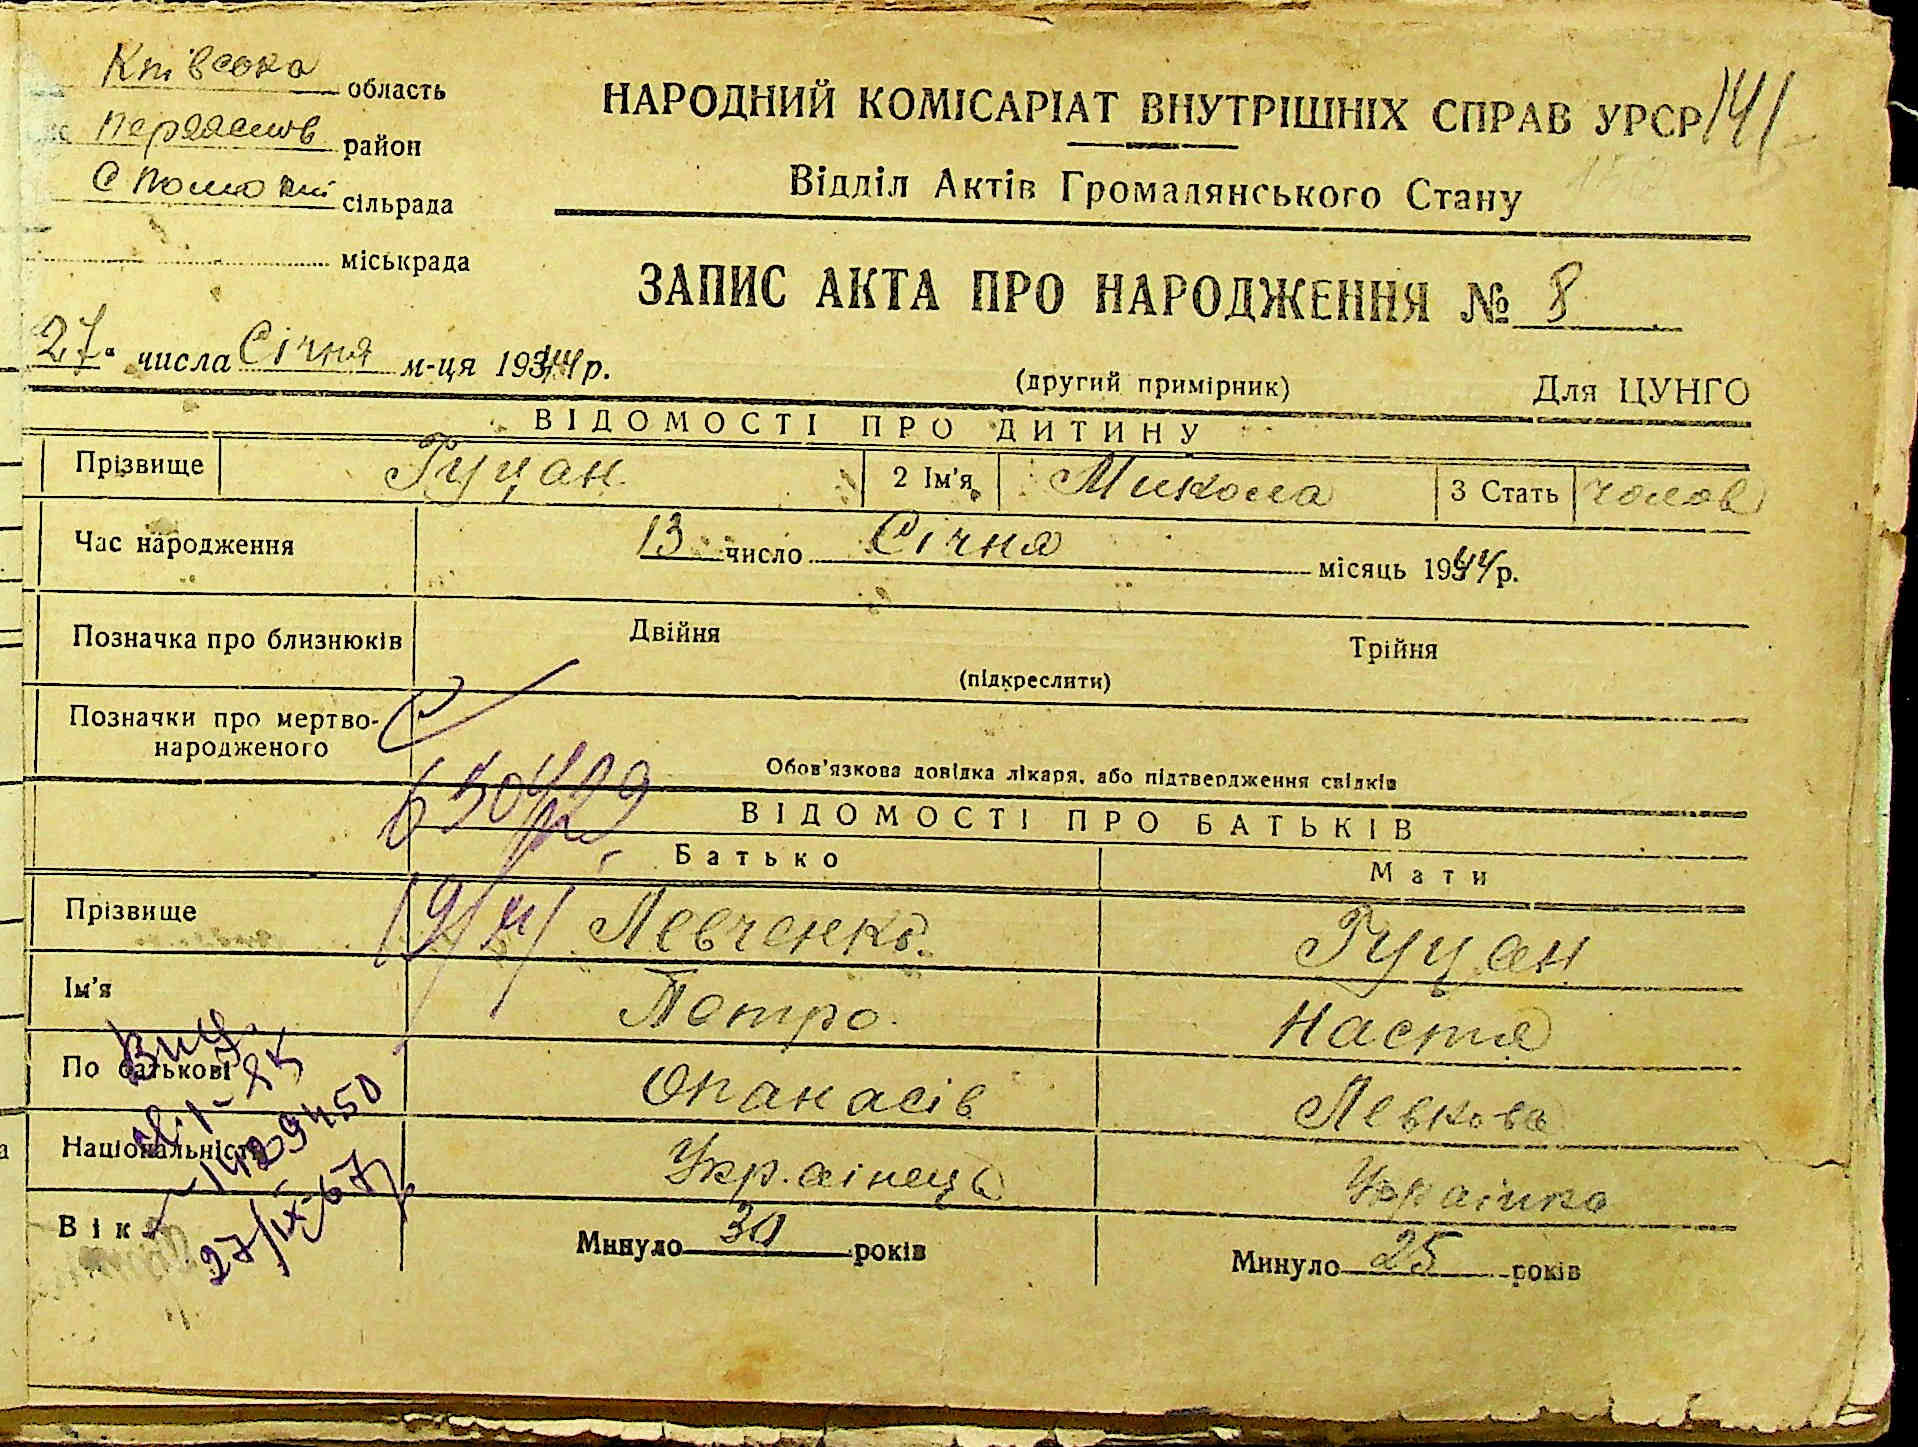 Київська область
район
сільрада
міськрада
НАРОДНИЙ КОМІСАРІАТ ВНУТРІШНІХ СПРАВ УРСР 141
Відділ Актів Громадянського Стану
ЗАПИС АКТА ПРО НАРОДЖЕННЯ № 8
27 числа Січня м-ця 1944 р.
(другий примірник) Для ЦУНГО
ВІДОМОСТІ ПРО ДИТИНУ
Прізвище Гуцан 2 Ім'я Микола 3 Стать чолов
Час народження 13 число Січня місяць 1944 р.
Позначка про близнюків Двійня Трійня
(підкреслити)
Позначки про мертво-
народженого
Обов'язкова довідка лікаря, або підтвердження свідків
ВІДОМОСТІ ПРО БАТЬКІВ
Батько Мати
Прізвище Левченко Гуцан
Ім'я Петро Настя
По батькові Опанасів Левкова
Національність Українець Українка
Вік Минуло 30 років Минуло 25 років
27/IX-67